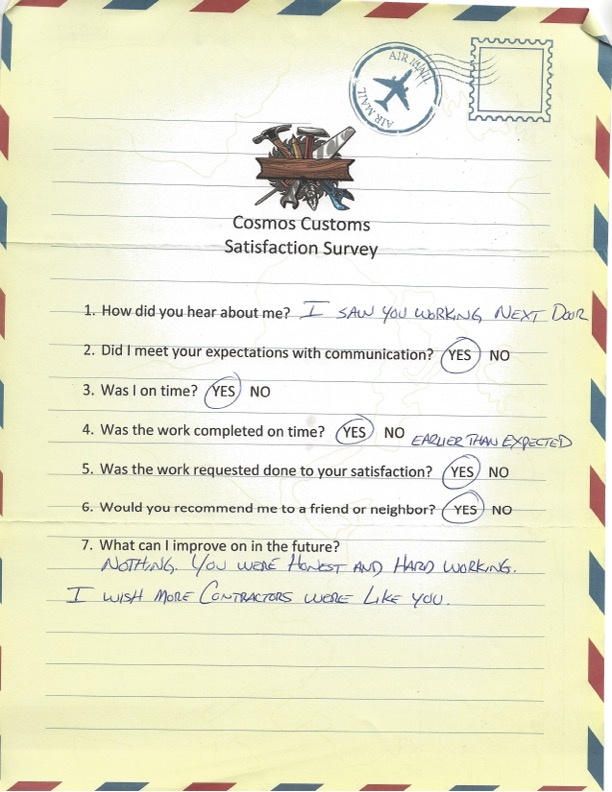 AIR MAIL
AIR MAIL
Cosmos Customs
Satisfaction Survey
1. How did you hear about me? I SAW YOU WORKING NEXT DOOR
2. Did I meet your expectations with communication? YES NO
3. Was I on time? YES NO
4. Was the work completed on time? YES NO EARLIER THAN EXPECTED
5. Was the work requested done to your satisfaction? YES NO
6. Would you recommend me to a friend or neighbor? YES NO
7. What can I improve on in the future?
NOTHING. YOU WERE HONEST AND HARD WORKING.
I WISH MORE CONTRACTORS WERE LIKE YOU.